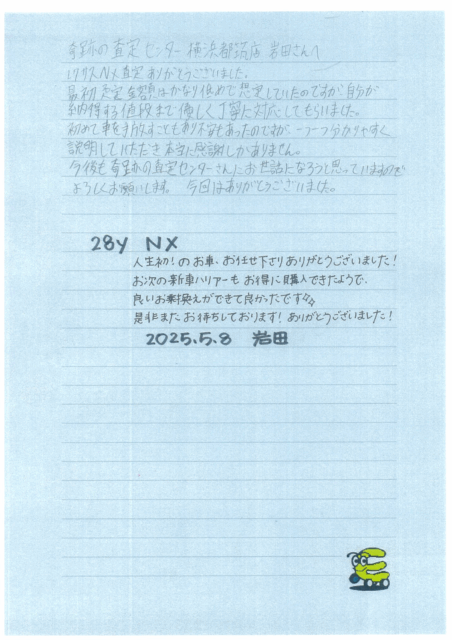 奇跡の査定センター 横浜都筑店 岩田さんへ
レクサスNX査定ありがとうございました。
最初 査定金額はかなり低めで想定していたのですが自分が
納得する値段まで優しく丁寧に対応してもらいました。
初めて車を手放すこともあり不安もあったのですが、一つ一つ分かりやすく
説明していただき本当に感謝しかありません。
今後も奇跡の査定センターさんにお世話になろうと思っていますので
よろしくお願いします。 今回はありがとうございました。
28y NX
人生初!のお車、お任せ下さりありがとうございました!
お次の新車ハリアーもお得に購入できたようで、
良いお乗換えができて良かったです
是非またお待ちしております! ありがとうございました!
2025.5.8 岩田